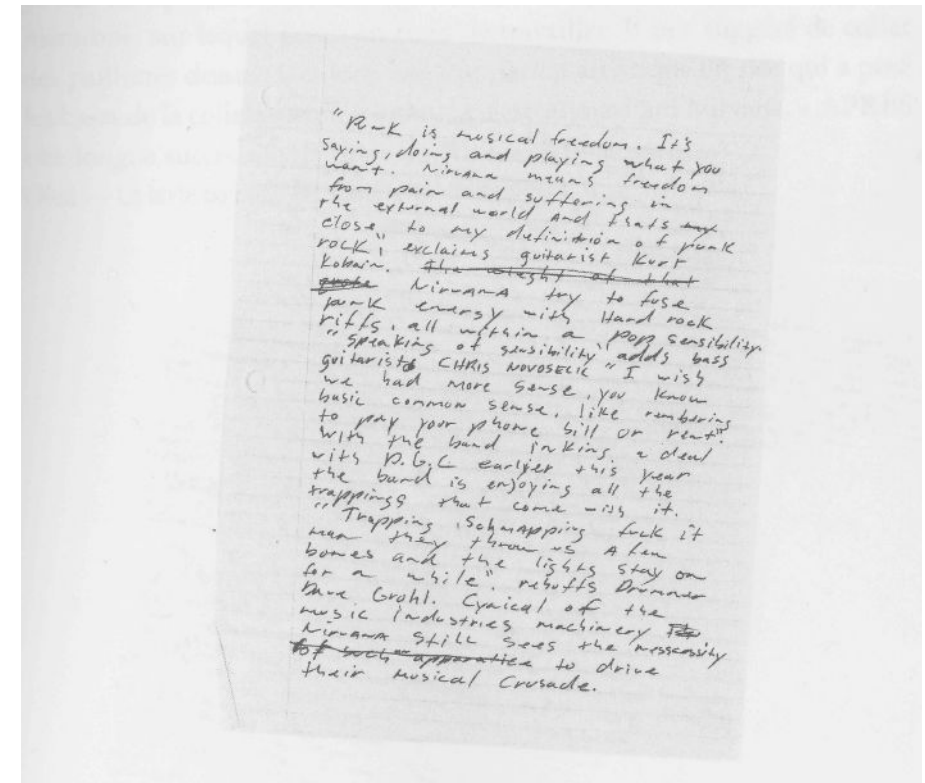 "Punk is musical freedom. It's
saying, doing and playing what you
want. Nirvana means freedom
from pain and suffering in
the external world and thats my
close to my definition of punk
rock", exclaims guitarist Kurt
Kobain. The wieght of that
quote Nirvana try to fuse
punk energy with Hard rock
riffs, all within a pop sensibility.
"Speaking of sensibility", adds bass
guitarist CHRIS NOVOSELIC "I wish
we had more sense, you know
basic common sense, like rembering
to pay your phone bill or rent".
With the band inking a deal
with D.G.C earlier this year
the band is enjoying all the
trappings that come with it.
"Trapping, Schmapping fuck it
man they throw us A few
bones and the lights stay on
for a while". rebuffs Drummer
Dave Grohl. Cynical of the
music industries machinery
Nirvana STILL sees the nesscessity
of such apparatice to drive
their musical Crusade.